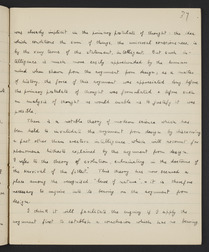 27
was already implicit in the primary postulate of thought: the law
which conditions the sum of things the universal consciousness, is
by the very terms of the statement, intelligent. But such in-
telligence is much more easily apprehended by the human
mind when shown from the argument from design; as a matter
of history, the force of this argument was appreciated long before
the primary postulate of thought was formulated &
an analysis of thought as would enable us to justify it was
possible.
There is a notable theory of modern science which has
been held to invalidate the argument from design by showing
a fact other than creative intelligence which will account for
phenomena hitherto explained by the argument from design.
I refer to the theory of evolution culminating in the doctrine of
the survival of the fittest. This theory has now secured a
place among the recognised "laws of nature" & it is therefore
necessary to inquire into its bearing on the argument from
design.
I think it will facilitate the inquiry if I apply the
argument first to establish a conclusion which has no bearing